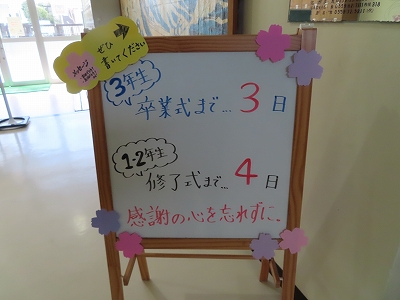 ぜひ
書いてください
メッセージ
3年生
卒業式まで…3日
1・2年生
修了式まで…4日
感謝の心を忘れずに。